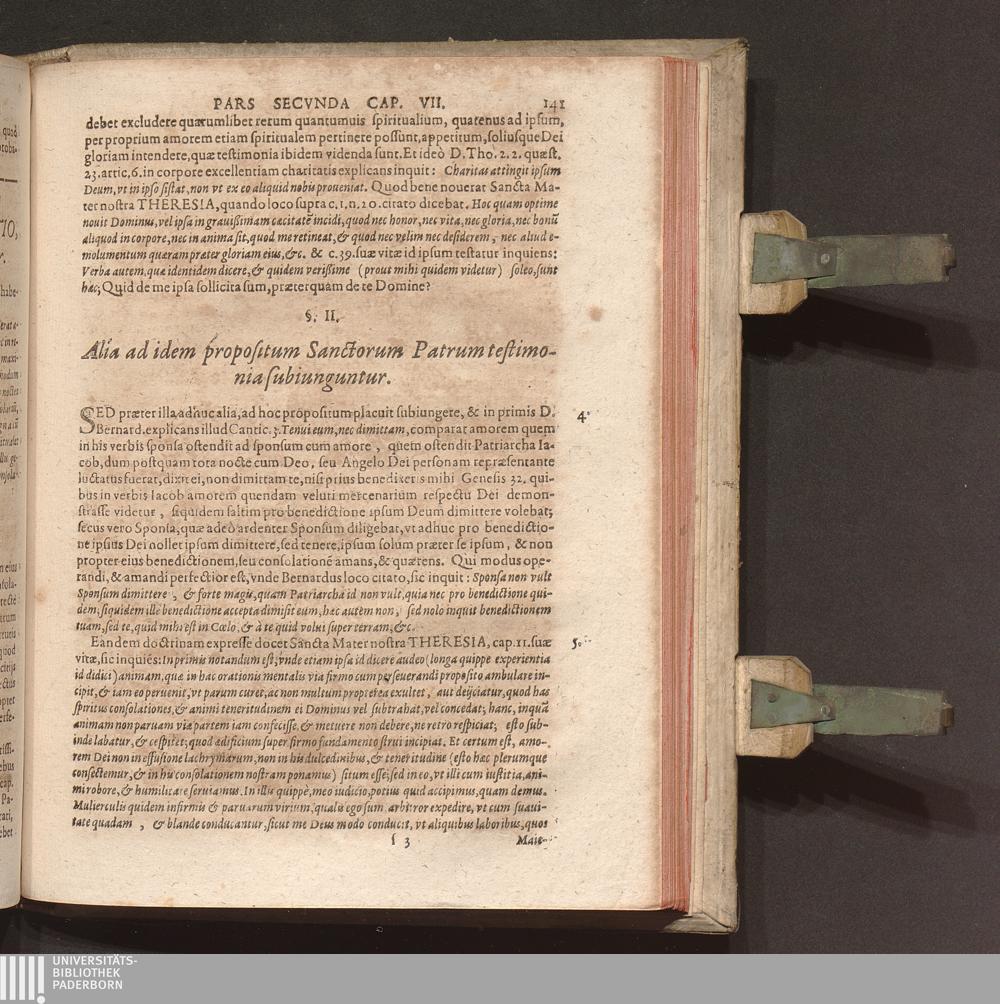 PARS SECVNDA CAP. VII. 141
debet excludere quarumlibet rerum quantumuis spiritualium, quatenus ad ipsum,
per proprium amorem etiam spiritualem pertinere possunt, appetitum, soliusque Dei
gloriam intendere, quæ testimonia ibidem videnda sunt. Et ideò D. Tho. 2. 2. quæst.
23. artic, 6. in corpore excellentiam charitatis explicans inquit: Charitas attingit ipsum
Deum, vt in ipso sistat, non vt ex eo aliquid nobis proueniat. Quod bene nouerat Sancta Ma-
ter nostra THERESIA, quando loco supra c. 1. n. 20. citato dicebat. Hoc quam optime
nouit Dominus, vel ipsa in grauissimam cæcitatē incidi, quod nec honor, nec vita, nec gloria, nec bonū
aliquod in corpore, nec in anima sit, quod me retineat, & quod nec velim nec desiderem, nec aliud e-
molumentum quæram præter gloriam eius, &c. & c. 39. suæ vitæ id ipsum testatur inquiens:
Verba autem, quæ identidem dicere, & quidem verissime (prout mihi quidem videtur) soleo, sunt
hæc; Quid de me ipsa sollicita sum, præterquam de te Domine?
§. II.
Alia ad idem propositum Sanctorum Patrum testimo-
nia subiunguntur.
SED præter illa, adhuc alia, ad hoc propositum placuit subiungere, & in primis D. 4.
Bernard. explicans illud Cantic. 3. Tenui eum, nec dimittam, comparat amorem quem
in his verbis sponsa ostendit ad sponsum cum amore, quem ostendit Patriarcha Ia-
cob, dum postquam tota nocte cum Deo, seu Angelo Dei personam repræsentante
luctatus fuerat, dixit ei, non dimittam te, nisi prius benedixeris mihi Genesis 32. qui-
bus in verbis Iacob amorem quendam veluti mercenarium respectu Dei demon-
strasse videtur, siquidem saltim pro benedictione ipsum Deum dimittere volebat;
secus vero Sponsa, quæ adeò ardenter Sponsum diligebat, vt adhuc pro benedictio-
ne ipsius Dei nollet ipsum dimittere, sed tenere, ipsum solum præter se ipsum, & non
propter eius benedictionem, seu consolationē amans, & quærens. Qui modus ope-
randi, & amandi perfectior est, vnde Bernardus loco citato, sic inquit: Sponsa non vult
Sponsum dimittere, & forte magis, quam Patriarcha id non vult, quia nec pro benedictione qui-
dem, siquidem ille benedictione accepta dimisit eum, hæc autem non, sed nolo inquit benedictionem
tuam, sed te, quid mihi est in Cœlo, & à te quid volui super terram, &c.
Eandem doctrinam expresse docet Sancta Mater nostra THERESIA, cap. 11. suæ 5.
vitæ, sic inquiēs: In primis notandum est, vnde etiam ipsa id dicere audeo (longa quippe experientia
id didici) animam, quæ in hac orationis mentalis via firmo cum perseuerandi proposito ambulare in-
cipit, & iam eo peruenit, vt parum curet, ac non multum propterea exultet, aut deijciatur, quod has
spiritus consolationes, & animi teneritudinem ei Dominus vel subtrahat, vel concedat; hanc, inquā
animam non paruam viæ partem iam confecisse, & metuere non debere, ne retro respiciat; esto sub-
inde labatur, & cespitet; quod ædificium super firmo fundamento strui incipiat. Et certum est, amo-
rem Dei non in effusione lachrymarum, non in his dulcedinibus, & teneritudine (esto hæc plerumque
consectemur, & in his consolationem nostram ponamus) situm esse; sed in eo, vt illi cum iustitia, ani-
mi robore, & humilitate seruiamus. In illis quippè, meo iudicio, potius quid accipimus, quam demus.
Mulierculis quidem infirmis & paruarum virium, qualis ego sum arbitror expedire, vt cum suaui-
tate quadam, & blande conducantur, sicut me Deus modo conducit, vt aliquibus laboribus, quos
s 3 Maie-
UNIVERSITÄTS-
BIBLIOTHEK
PADERBORN